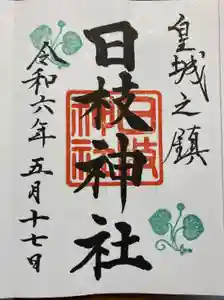 皇城之鎮
日枝神社
令和六年五月十七日
日枝神社